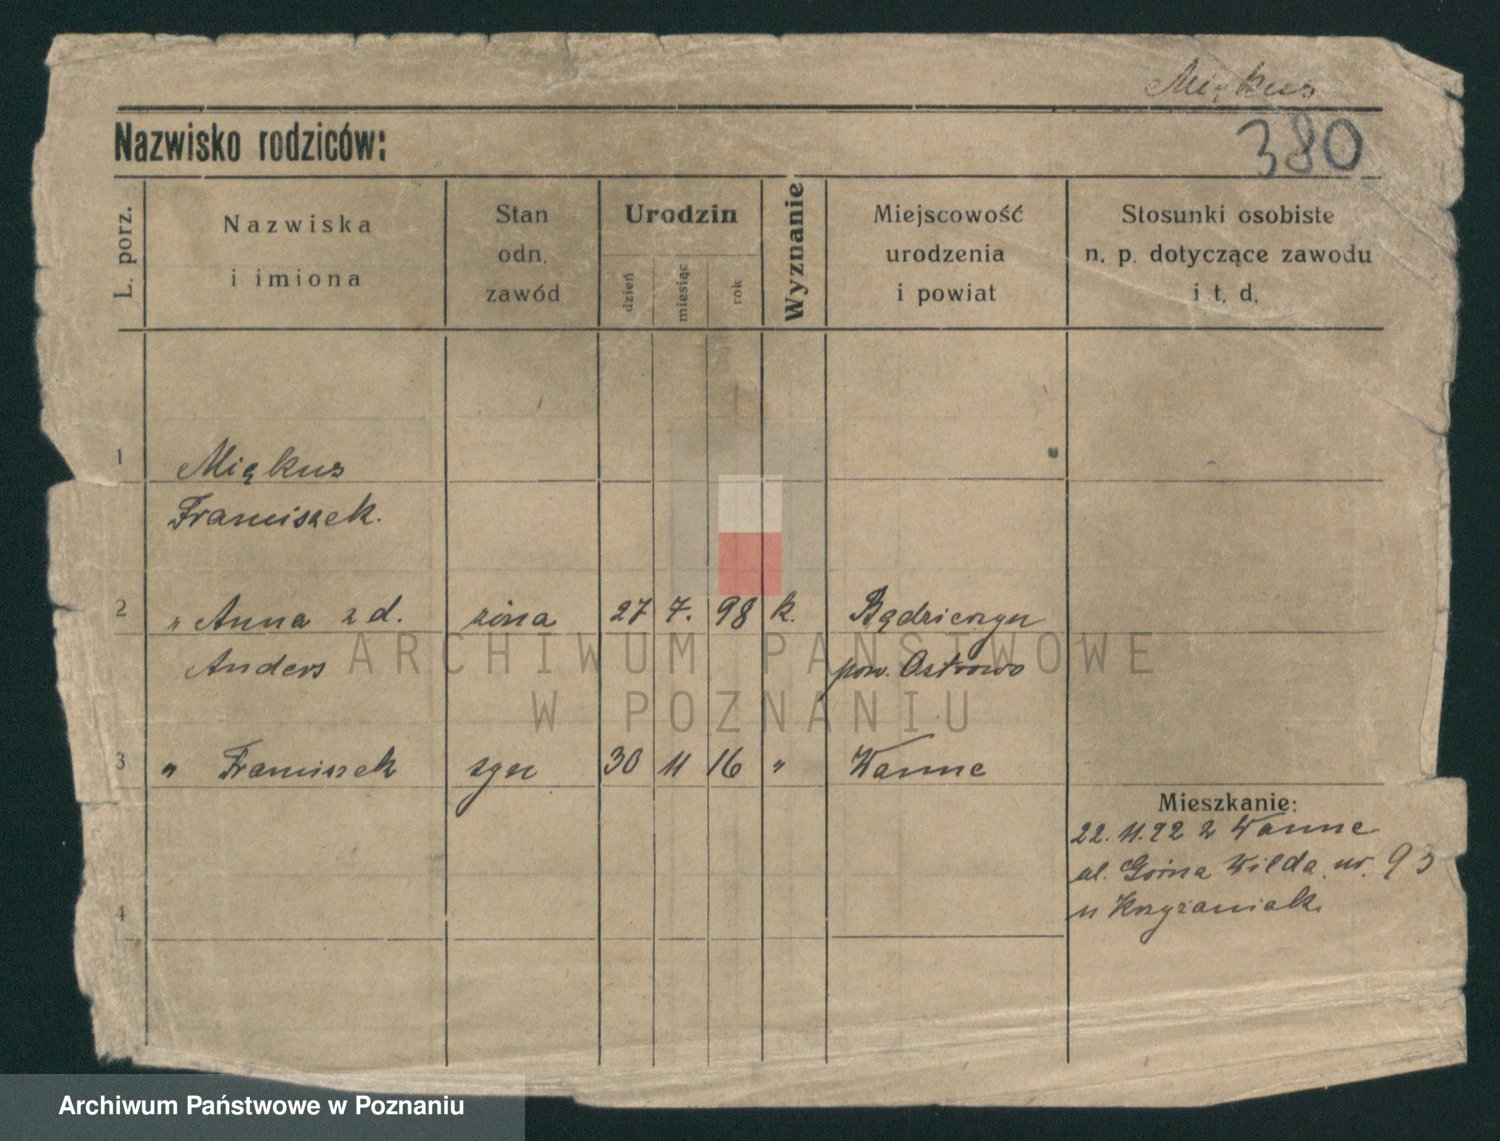 Miękus
380
Nazwisko rodziców:
L. porz.
Nazwiska
i imiona
Stan
odn.
zawód
Urodzin
dzień
miesiąc
rok
Wyznanie
Miejscowość
urodzenia
i powiat
Stosunki osobiste
n. p. dotyczące zawodu
i t. d.
1
Miękus
Franciszek.
2 „ Anna z d. żona 27 7. 98 k.
Anders pow. Ostrowo
3 „ Franciszek syn 30 11 16 „ Wanne
4
Mieszkanie:
22. 11. 22 z Wanne
ul. Górna Wilda nr. 93
u Krzyżaniak
ARCHIWUM PAŃSTWOWE
W POZNANIU
Archiwum Państwowe w Poznaniu